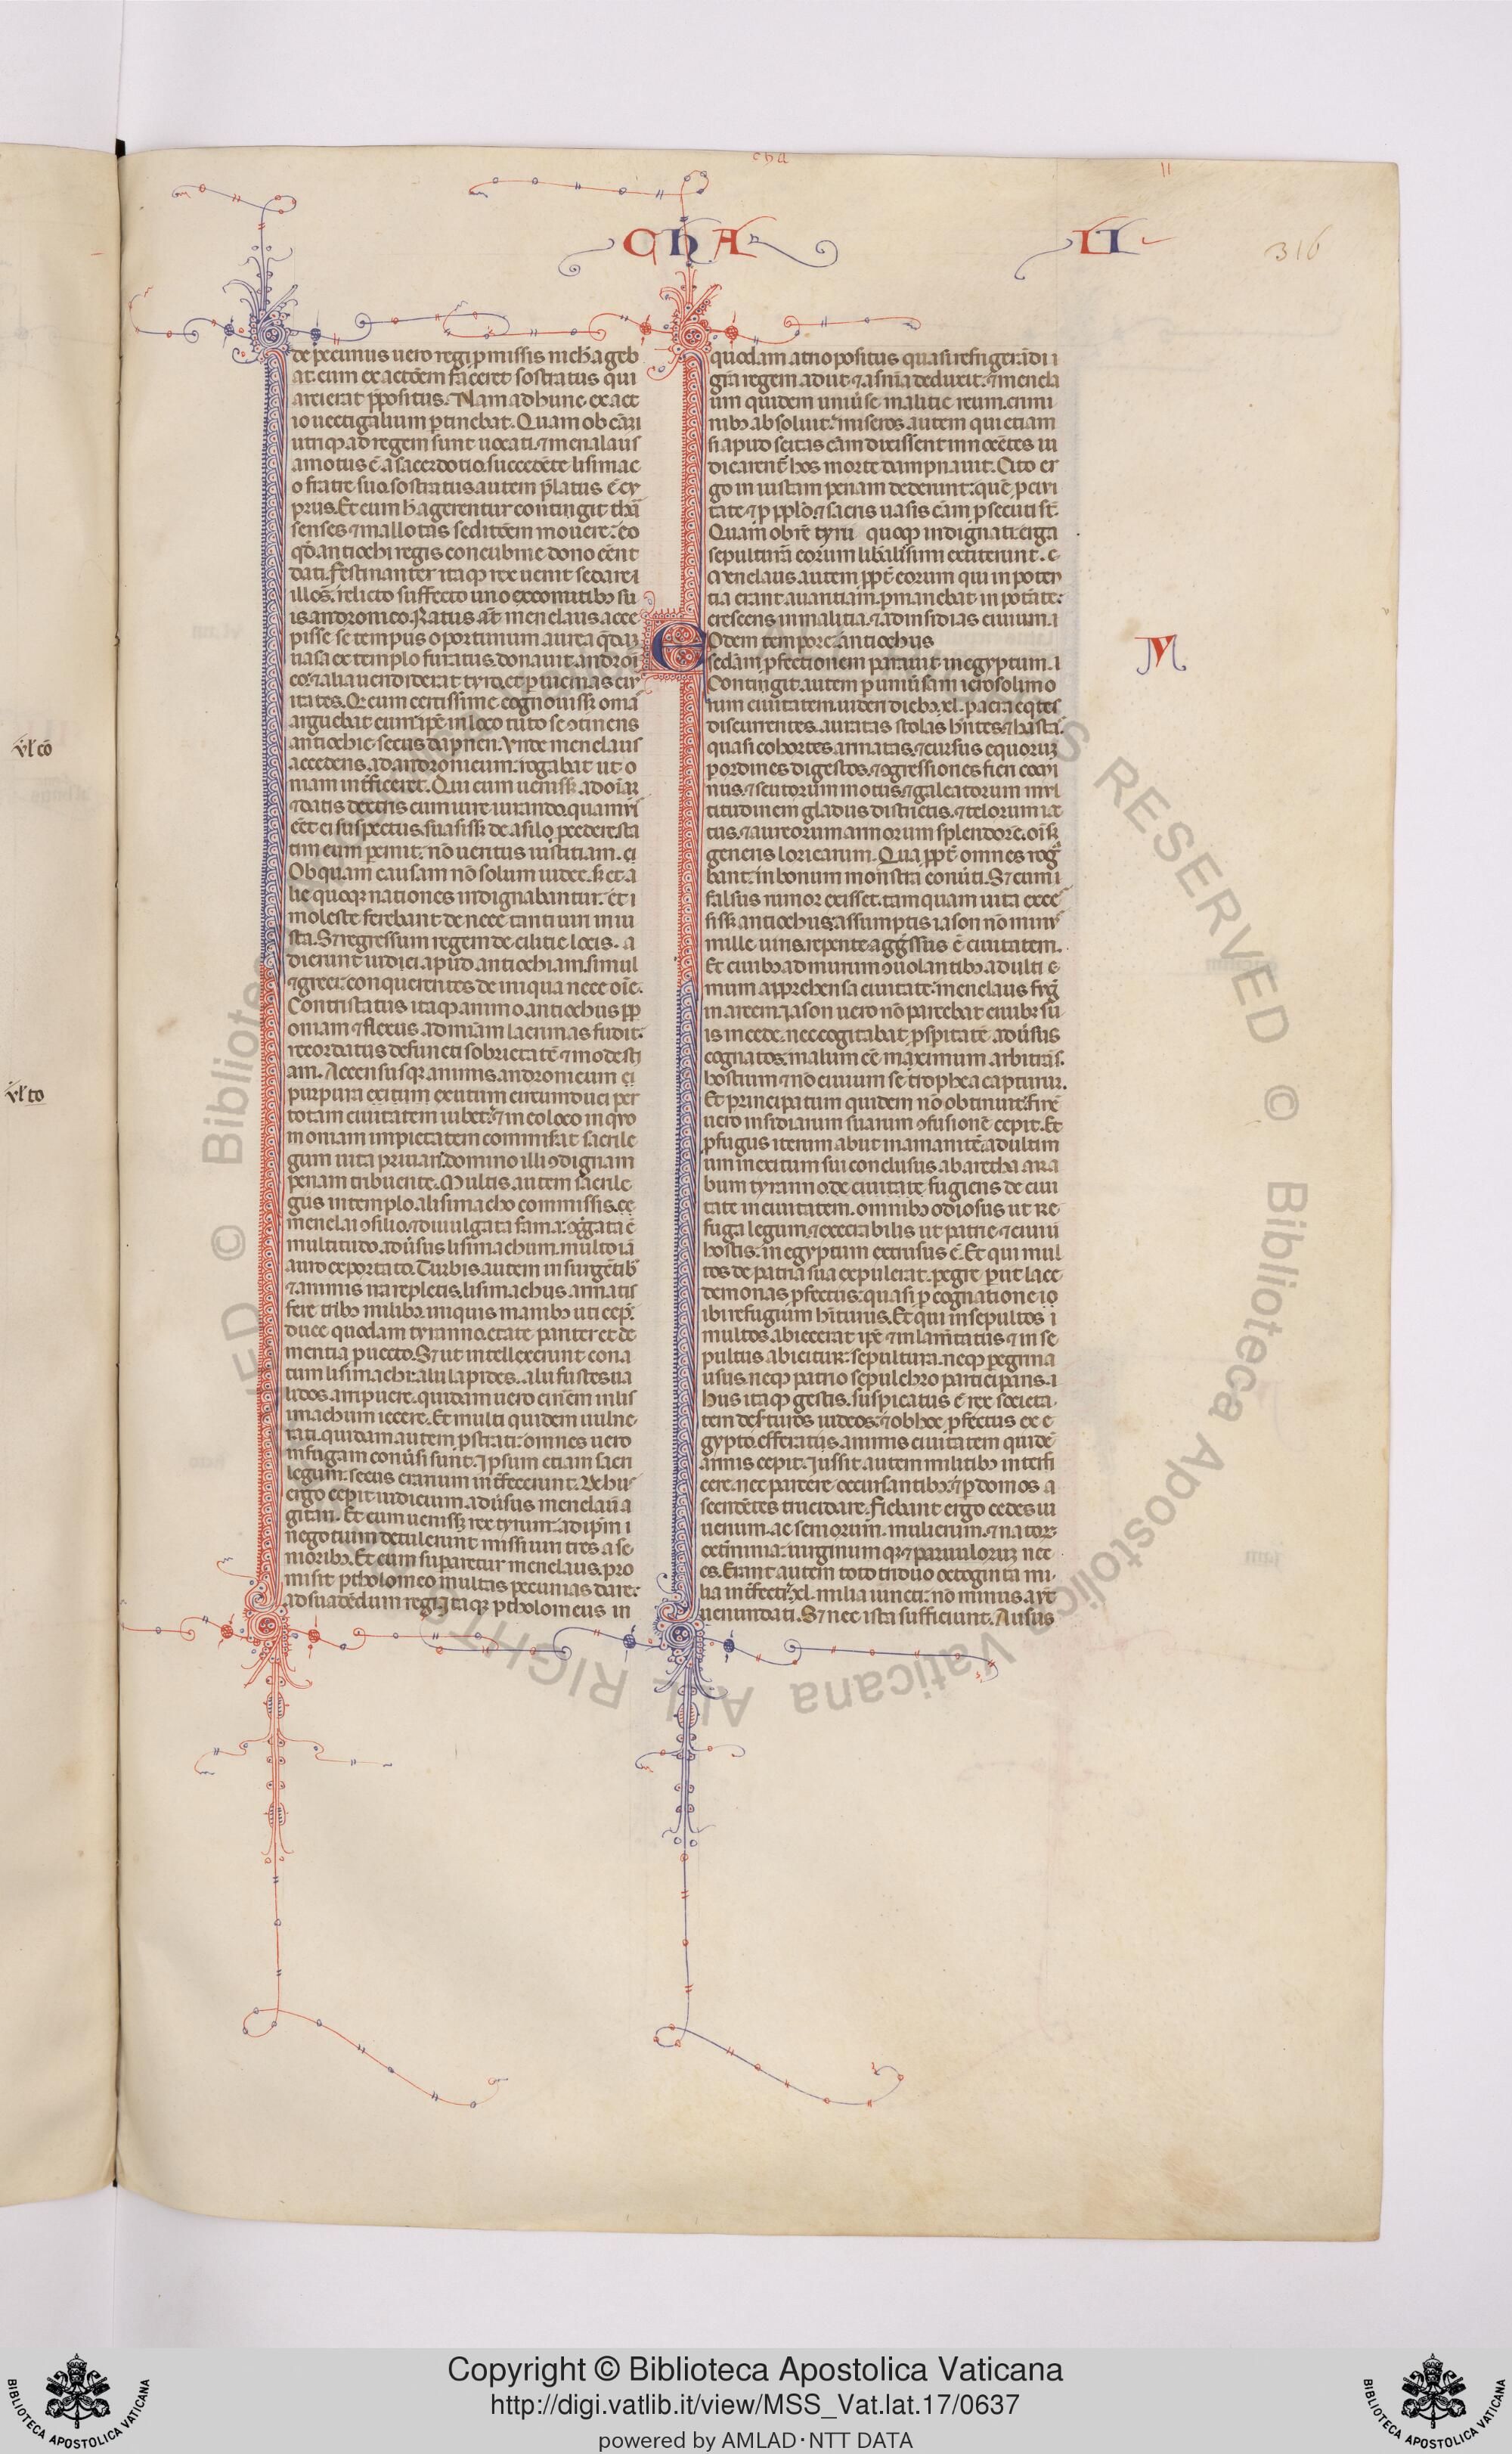 CHA
II
316
de pecuniis uero regi ꝓmissis nich̄ ageb
at. cum exactōem faceret sostratus qui
arci erat p̄positus. Nam ad hunc exact
io uectigalium ꝑtinebat. Quam ob cām
utriqꝫ ad regem sunt uocati. ⁊ menalaus
amotus ē a sacerdotio. succedēte lisimac
o fratre suo. sostratus autem p̄latus ē cy
prus. Et cum h̄ agerentur contingit thar
senses ⁊ mallotas seditōem mouere. eo
qd̄ antiochi regis concubine dono cēnt
dati. festinanter itaqꝫ rex uenit sedare i
illos. relicto suffecto uno ex comitibꝫ su
is andronico. Ratus aūt menelaus acce
pisse se tempus oportunum aurea q̄daꝫ
uasa ex templo furatus. donauit androni
co. ⁊ alia uendiderat tyro. et ꝑ uicinas ciu
itates. Qꝫ cum certissime cognouissꝫ onia
arguebat eum. ip̄e in loco tuto se ↄtinens
antiochie secus dapnen. Vnde menelaus
accedens ad andronicum. rogabat ut o
niam int̄ficeret. Qui cum uenissꝫ ad oniaꝫ
⁊ datis dextris cum iure iurando. quamuis
eēt ei suspectus. suasissꝫ de asilo ꝓcedere. sta
tim eum ꝑemit. nō ueritus iustitiam. ei
Ob quam causam nō solum iudei. sꝫ et a
lie quoqꝫ nationes indignabantur. et i
moleste ferebant de nece tanti uiri iniu
sta. Sꝫ regressum regem de cilitie locis. a
dierunt iudei apud antiochiam. simul
⁊ greci. conquerentes de iniqua nece onie.
Contristatus itaqꝫ animo antiochus ꝓp
oniam ⁊ flexus ad miam lacrimas fudit.
recordatus defuncti sobrietatē ⁊ modesti
am. Accensusqꝫ animis andronicum ei
purpura exitum exutum circumduci per
totam ciuitatem iubet. ⁊ in eo loco in quo
in oniam impietatem commis̄at sacrile
gum uita priuari. domino illi ↄdignam
penam tribuente. Multis autem sacrile
gus in templo a lisimacho commissis. ex
menelai ↄsilio. ⁊ diuulgata fama. ↄg̃gata ē
multitudo adūsus lisimachum. multo iā
auro exportato. Turbis autem insurgētibꝫ
⁊ animis ira repletis. lisimachus armatis
fere tribꝫ milibꝫ. iniquis manibꝫ uti cepit.
duce quodam tyranno. etate pariter et de
mentia ꝓuecto. Sꝫ ut intellexerunt cona
tum lisimachi. alii lapides. alii fustes ua
lidos arripuere. quidam uero cinerem in lis
imachum iecere. Et multi quidem uulne
rati. quidam autem ꝓstrati. omnes uero
in fugam conūsi sunt. Ipsum etiam sacri
legum. secus erarium int̄fecerunt. De hiis
ergo cepit iudicium adūsus menelaū a
gitari. Et cum uenissꝫ rex tyrum. ad ip̄m i
negotium detulerunt missi uiri tres a se
nioribꝫ. Et cum suparetur menelaus. pro
misit ptholomeo multas pecunias dare.
ad suadēdum regi. Itaqꝫ ptholomeus in
quodam atrio positus quasi refrigerādi i
gr̄a regem adiit. ⁊ a sn̄ia deduxit. ⁊ menela
um quidem uniūse malitie reum. crimi
nibꝫ absoluit. miseros autem qui etiam
si apud scitas cām dixissent innocētes iu
dicarent̄. hos morte dampnauit. Cito er
go iniustam penam dederunt. qui ꝓ ciui
tate ⁊ ꝓ pplo ⁊ sacris uasis cām ꝓsecuti sūt.
Quam obrē tyrii quoqꝫ indignati. erga
sepulturā eorum liberalissimi extiterunt. e
Menelaus autem ꝓpt̄ eorum qui in poten
tia erant auaritiam. ꝑmanebat in potātē.
crescens in malitia. ⁊ ad insidias ciuium. i
Eodem tempore antiochus
sedam ꝓfectionem parauit in egyptum. i
Contingit autem ꝑ uniūsam ierosolimo
rum ciuitatem. uideri diebꝫ. xl. ꝑ aera eq̄tes
discurrentes. auratas stolas hn̄tes. ⁊ hastas.
quasi cohortes armatas. ⁊ cursus equoruꝫ
ꝑ ordines digestos. ⁊ ↄgressiones fieri comi
nus. ⁊ scutorum motus. ⁊ galeatorum mul
titudinem gladiis districtis. ⁊ telorum iac
tus. ⁊ aureorum armorum splendorē. oīsqꝫ
generis loricarum. Qua ꝓpt̄ omnes rog̃
bant. in bonum monstra conūti. Sꝫ cum i
falsus rumor exisset. tamquam uita exces
sissꝫ antiochus. assumptis iason nō minꝰ
mille uiris. repente aggr̄ssus ē ciuitatem.
Et ciuibꝫ ad murum ↄuolantibꝫ. ad ulti e
mum apprehensa ciuitate. menelaus fug̃
in arcem. Iason uero nō parcebat ciuibꝫ su
is in cede. nec cogitabat ꝓspitatē adūsus
cognatos. malum eē maximum. arbitrās.
hostium ⁊ nō ciuium se trophea capturū.
Et principatum quidem nō obtinuit. finē
uero insidiarum suarum ↄfusionē cepit. Et
ꝓfugus iterum abiit in amanitē. ad ultim
um in exitum sui conclusus ab aretha ara
bum tyranno. de ciuitate fugiens de ciui
tate in ciuitatem. omnibꝫ odiosus ut re
fuga legum. ⁊ execrabilis. ut patrie ⁊ ciuiū
hostis. in egyptum extrusus ē. Et qui mul
tos de patria sua expulerat. ꝑegre ꝑiit lace
demonas ꝓfectus. quasi ꝓ cognatione io
ibi refugium hīturus. Et qui insepultos i
multos abiecerat ip̄e ⁊ inlamētatus ⁊ inse
pultus abicitur. sepultura neqꝫ ꝑegrina
usus. neqꝫ patrio sepulchro participans. i
Hiis itaqꝫ gestis. suspicatus ē rex societa
tem desꝑturos iudeos. ⁊ ob hoc ꝓfectus ex e
gypto. efferatus animis ciuitatem quidē
armis cepit. Iussit autem militibꝫ interfi
cere. nec parcere occursantibꝫ. ⁊ ꝑ domos a
scendētes trucidare. fiebant ergo cedes iu
uenum ac seniorum. mulierum. ⁊ natorꝫ
exterminia. uirginum qꝫ ⁊ paruuloruꝫ nec
es. Erant autem toto triduo octoginta mi
lia int̄fecti. xl. milia iuncti. nō minus aūt
uenundati. Sꝫ nec ista sufficiunt. Ausus
V
Copyright © Biblioteca Apostolica Vaticana
http://digi.vatlib.it/view/MSS_Vat.lat.17/0637
powered by AMLAD·NTT DATA